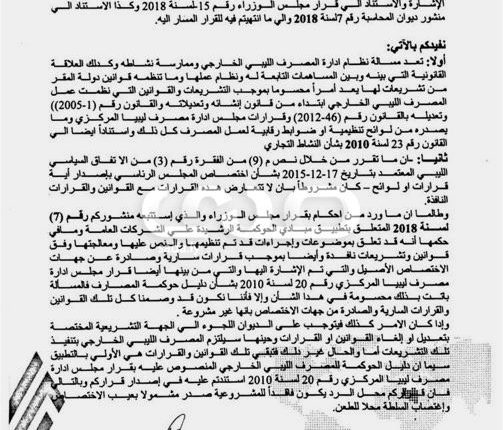 الإشارة والاستناد الي قرار مجلس الوزراء رقم 15-لسنة 2018 وكذا الاستناد الي
منشور ديوان المحاسبة رقم 7لسنة 2018 والي ما انتهيتم فيه للقرار المسار اليه.
نفيدكم بالآتي:
أولا: تعد مسالة نظام ادارة المصرف الليبي الخارجي وممارسة نشاطه وكدلك العلاقة
القانونية التي بينه وبين المساهمات التابعة له ونظام عملها وما تنظمه قوانين دولة المقر
من تشريعات لها يعد أمراً محسوما بموجب التشريعات والقوانين التي نظمت عمل
المصرف الليبي الخارجي ابتداء من قانون إنشائه وتعديلاته والقانون رقم (1-2005))
وتعديله بالقانون رقم (46-2012) وقرارات مجلس ادارة مصرف ليبيا المركزي وما
يصدره من لوائح تنظيمية او ضوابط رقابية لعمل المصرف كل ذلك واستناداً ايضا الي
القانون رقم 23 لسنة 2010 بشأن النشاط التجاري
ثانيا: -ان ما تقرر من خلال نص م (9) من الفقرة رقم (3) من الا تفاق السياسي
الليبي المعتمد بتاريخ 17-12-2015 بشأن اختصاص المجلس الرئاسي بإصدار أية
قرارات او لوائح – كان مشروطاً بان لا تتعارض هده القرارات مع القوانين والقرارات
النافذة.
وطالما ان ما ورد من احكام بقرار مجلس الوزراء والذي إستتبعه منشوركم رقم (7)
لسنة 2018 المتعلق بتطبيق مبادي الحوكمة الرشيدة علي الشركات العامة ومافي
حكمها أنه قد تعلق بموضوعات وإجراءات قد تم تنظيمها والنص عليها ومعالجتها وفق
قوانين وتشريعات نافدة وأيضا بموجب قرارات سارية وصادرة عن جهات
الاختصاص الأصيل والتي تم الإشارة اليها والتي من بينها أيضا قرار مجلس ادارة
مصرف ليبيا المركزي رقم 20 لسنة 2010 بشأن دليل حوكمة المصارف فالمسألة
باتت بذلك محسومة في هذا الشأن وإلا فأننا نكون قد وصمنا كل تلك القوانين
والقرارات السارية والصادرة من جهات الاختصاص بانها غير مشروعة .
وإدا كان الامر كذلك فيتوجب علي الديوان اللجوء الي الجهة التشريعية المختصة
بتعديل او إلغاء القوانين او القرارات وحينها سيلتزم المصرف الليبي الخارجي بتنفيذ
تلك التشريعات أما والحال غير ذلك فتبقي تلك القوانين والقرارات هي الأولي بالتطبيق
سيما ان دليل الحوكمة للمصرف الليبي الخارجي المنصوص عليه بقرار مجلس ادارة
مصرف ليبيا المركزي رقم 20 لسنة 2010 استندتم عليه في إصدار قراركم وبالتالي
فان قراركم محل الرد يكون فاقداً للمشروعية صدر مشمولا بعيب الاختصاص
وإغتصاب السلطة محلا للطعن.